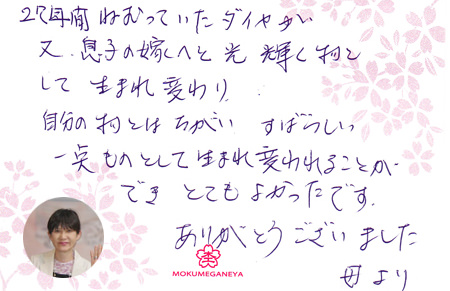 27年間 ねむっていた ダイヤが
又、息子の嫁へと 光 輝く物と
して 生まれ変わり
自分の物とは ちがい すばらしい
一点ものとして生まれ変われることが
でき とても よかったです。
ありがとうございました
母より
MOKUMEGANEYA